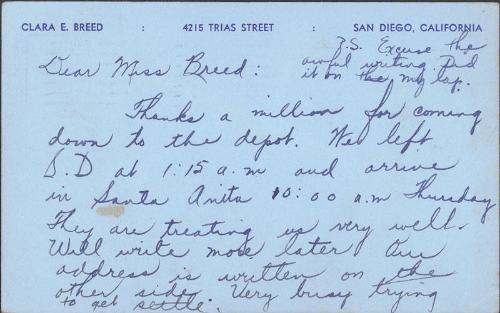 CLARA E. BREED : 4215 TRIAS STREET : SAN DIEGO, CALIFORNIA
P.S. Excuse the
awful writing Did
it on the my lap.
Dear Miss Breed:
Thanks a million for coming
down to the depot. We left
S.D at 1:15 a.m and arrive
in Santa Anita 10:00 a.m Thursday
They are treating us very well.
Will write more later Our
address is written on the
other side. Very busy trying
to get settle.